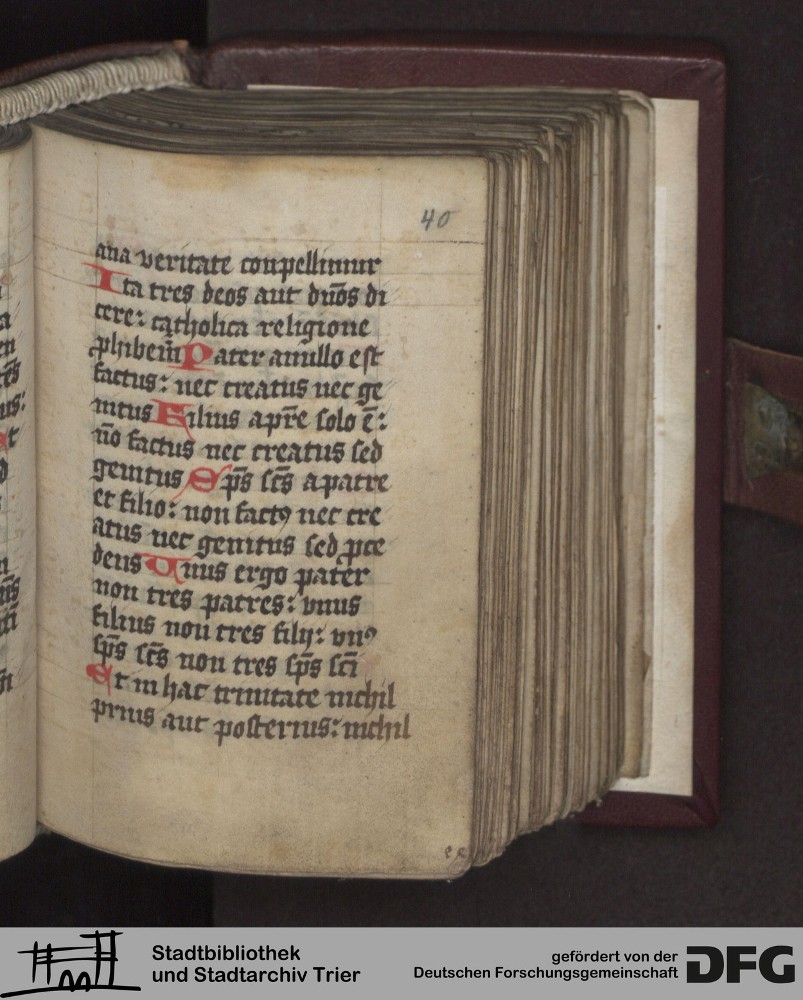 40
ana veritate conpellimur
Ita tres deos aut dn̄os di
cere: catholica religione
ꝓhibem̄ Pater a nullo est
factus: nec creatus nec ge
nitus Filius a pr̄e solo ē:
nō factus nec creatus sed
genitus Sp̄s sc̄s a patre
et filio: non factꝰ nec cre
atus nec genitus sed ꝓce
dens Unus ergo pater
non tres patres: vnus
filius non tres filij: vnꝰ
sp̄s sc̄s non tres sp̄s sc̄i
Et in hac trinitate nichil
prius aut posterius: nichil
Stadtbibliothek
und Stadtarchiv Trier
gefördert von der
Deutschen Forschungsgemeinschaft
DFG